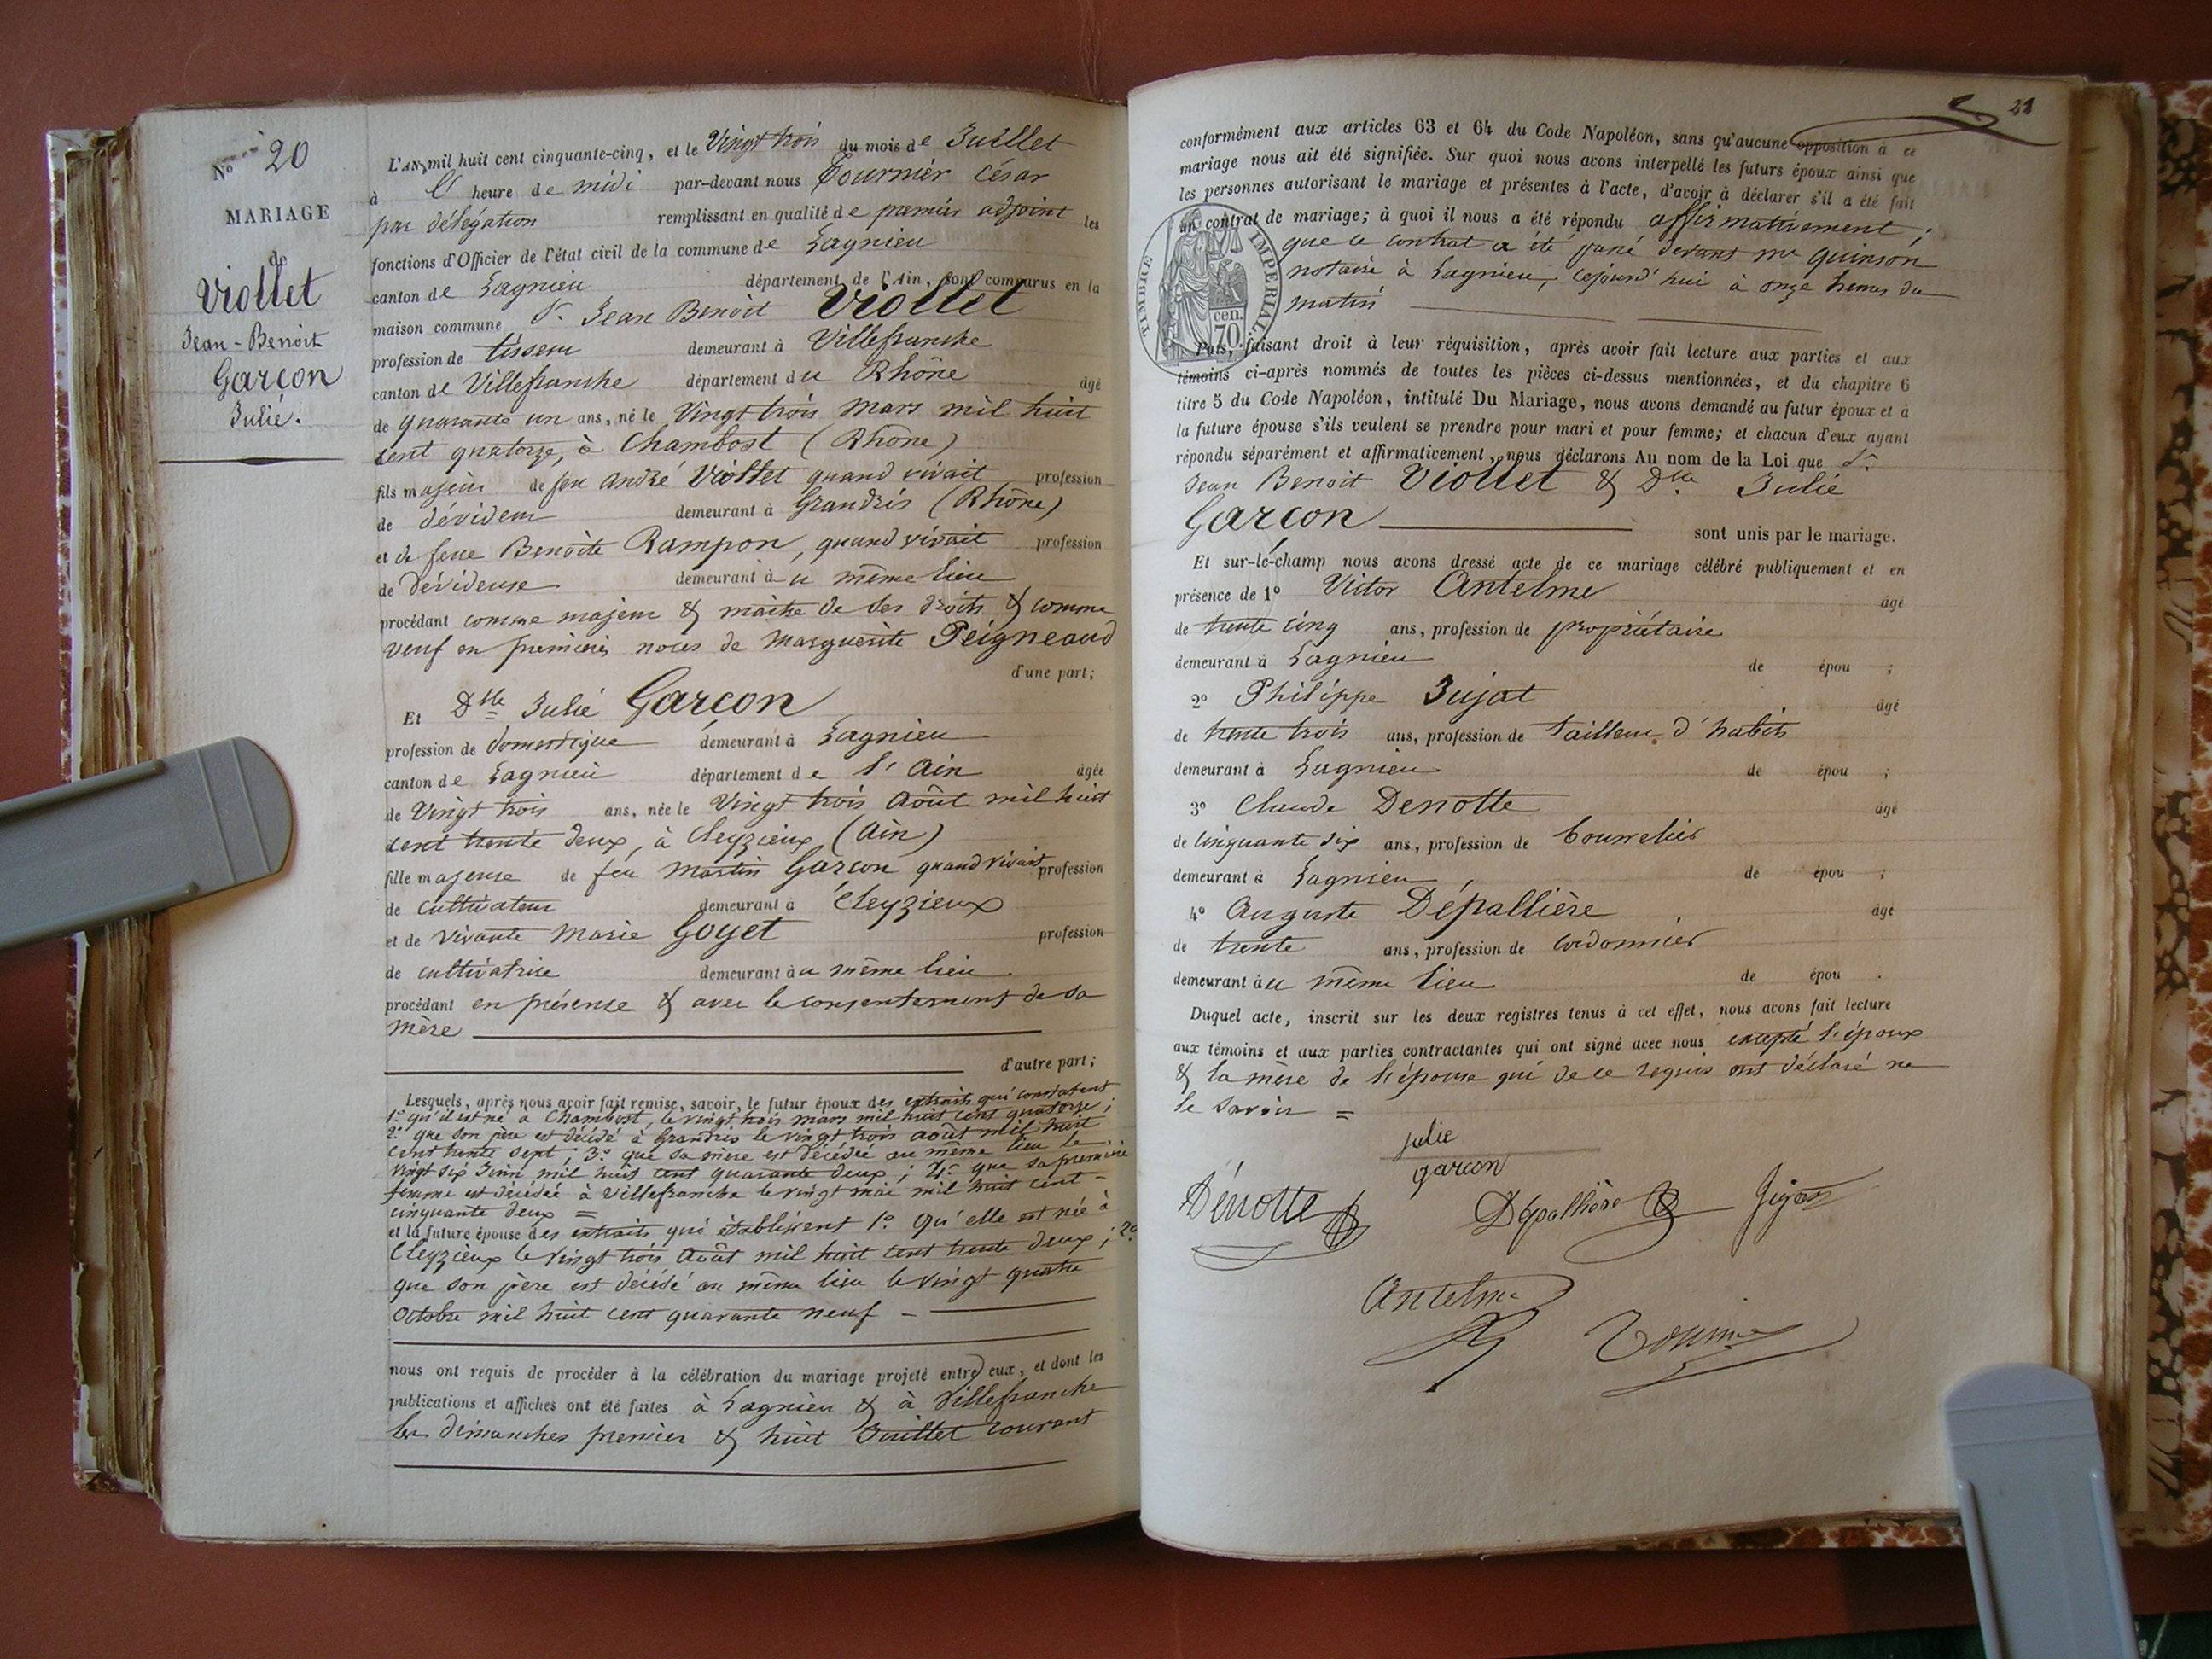 N° 20
MARIAGE
de
Viollet
Jean-Benoit
Garcon
Julie.
L'AN mil huit cent cinquante-cinq, et le Vingt trois du mois de Juillet
à l' heure de midi par-devant nous Tournier César
par délégation remplissant en qualité de premier adjoint les
fonctions d'Officier de l'état civil de la commune de Lagnieu
canton de Lagnieu département de l'Ain, sont comparus en la
maison commune Sr. Jean Benoit Viollet
profession de tisseur demeurant à Villefranche
canton de Villefranche département du Rhône âgé
de quarante un ans, né le Vingt trois Mars mil huit
cent quatorze, à Chambost (Rhône)
fils majeur de feu André Viollet quand vivait profession
de dévideur demeurant à Grandris (Rhône)
et de feue Benoite Rampon, quand vivait profession
de dévideuse demeurant à u même lieu
procédant comme majeur & maitre de ses droits & comme
veuf en premières noces de Marguerite Peigneaud
d'une part;
Et Dlle Julie Garcon
profession de domestique demeurant à Lagnieu
canton de Lagnieu département de l'Ain âgée
de Vingt trois ans, née le Vingt trois Août mil huit
cent trente deux, à Cleyzieux (Ain)
fille majeure de feu Martin Garcon quand vivait profession
de cultivateur demeurant à Cleyzieux
et de vivante Marie Goyet profession
de cultivatrice demeurant à u même lieu
procédant en présence & avec le consentement de sa
mère
d'autre part;
Lesquels, après nous avoir fait remise, savoir, le futur époux des extraits qui constatent
1° qu'il est né à Chambost, le vingt trois mars mil huit cent quatorze;
2° que son père est décédé à Grandris le vingt trois août mil huit
cent trente sept; 3° que sa mère est décédée au même lieu le
vingt six Juin mil huit cent quarante deux; 4° que sa première
femme est décédée à Villefranche le vingt mai mil huit cent
cinquante deux =
et la future épouse des extraits qui établissent 1° qu'elle est née à
Cleyzieux le vingt trois Août mil huit cent trente deux; 2°
que son père est décédé au même lieu le vingt quatre
Octobre mil huit cent quarante neuf
nous ont requis de procéder à la célébration du mariage projeté entre eux, et dont les
publications et affiches ont été faites à Lagnieu & à Villefranche
les dimanches premier & huit Juillet courant
21
conformément aux articles 63 et 64 du Code Napoléon, sans qu'aucune opposition à ce
mariage nous ait été signifiée. Sur quoi nous avons interpellé les futurs époux ainsi que
les personnes autorisant le mariage et présentes à l'acte, d'avoir à déclarer s'il a été fait
un contrat de mariage; à quoi il nous a été répondu affirmativement;
que le contrat a été passé devant me Quinson
notaire à Lagnieu, cejourd'hui à onze heures du
matin
TIMBRE IMPERIAL
cen.
70.
Puis, faisant droit à leur réquisition, après avoir fait lecture aux parties et aux
témoins ci-après nommés de toutes les pièces ci-dessus mentionnées, et du chapitre 6
titre 5 du Code Napoléon, intitulé Du Mariage, nous avons demandé au futur époux et à
la future épouse s'ils veulent se prendre pour mari et pour femme; et chacun d'eux ayant
répondu séparément et affirmativement, nous déclarons Au nom de la Loi que Sr.
Jean Benoit Viollet & Dlle Julie
Garcon sont unis par le mariage.
Et sur-le-champ nous avons dressé acte de ce mariage célébré publiquement et en
présence de 1° Victor Antelme âgé
de trente cinq ans, profession de propriétaire
demeurant à Lagnieu de épou ;
2° Philippe Jujat âgé
de trente trois ans, profession de tailleur d'habits
demeurant à Lagnieu de épou ;
3° Claude Denotte âgé
de cinquante six ans, profession de bourrelier
demeurant à Lagnieu, de épou ;
4° Auguste Dépallière âgé
de trente ans, profession de cordonnier
demeurant à u même lieu de épou .
Duquel acte, inscrit sur les deux registres tenus à cet effet, nous avons fait lecture
aux témoins et aux parties contractantes qui ont signé avec nous excepté l'époux
& la mère de l'épouse qui de ce requis ont déclaré ne
le savoir =
julie
garcon
Dénotte
Dépallière
Jujat
Antelme
Tournier